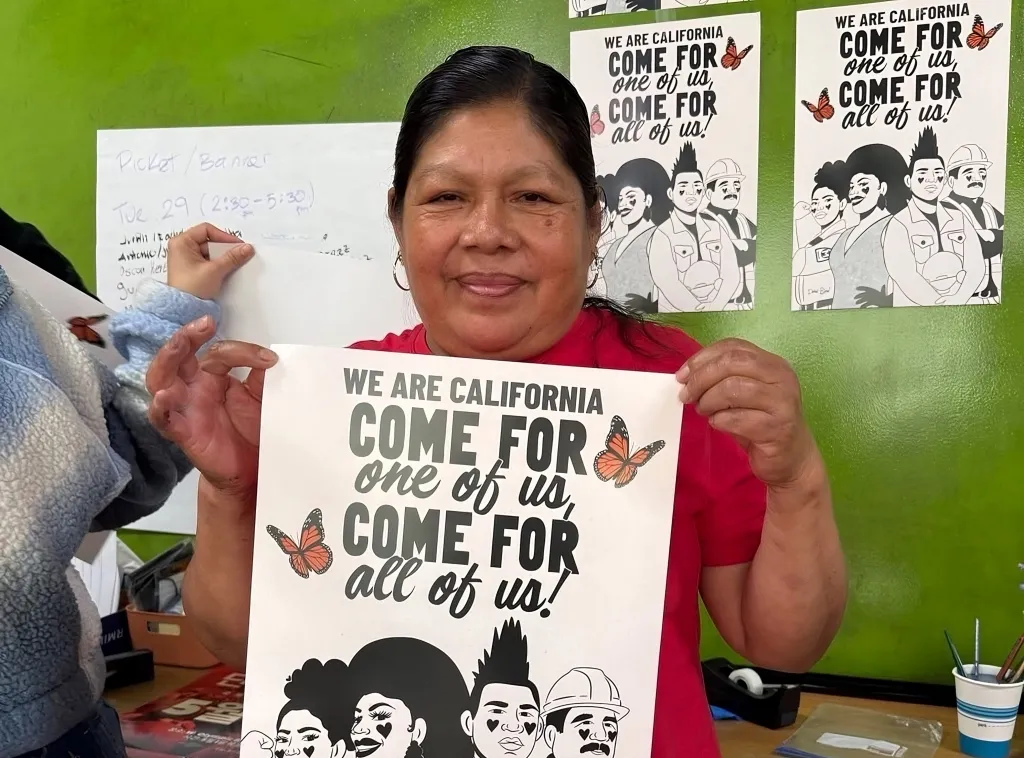 WE ARE CALIFORNIA
COME FOR
one of us,
COME FOR
all of us!
WE ARE CALIFORNIA
COME FOR
one of us,
COME FOR
all of us!
Picket/Banner
Tue 29 (2:30pm-5:30pm)
WE ARE CALIFORNIA
COME FOR
one of us,
COME FOR
all of us!